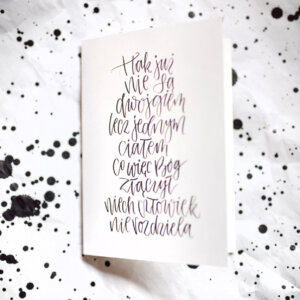 I tak już
nie są
dwojgiem
lecz jednym
ciałem
co więc Bóg
złączył
niech człowiek
nie rozdziela